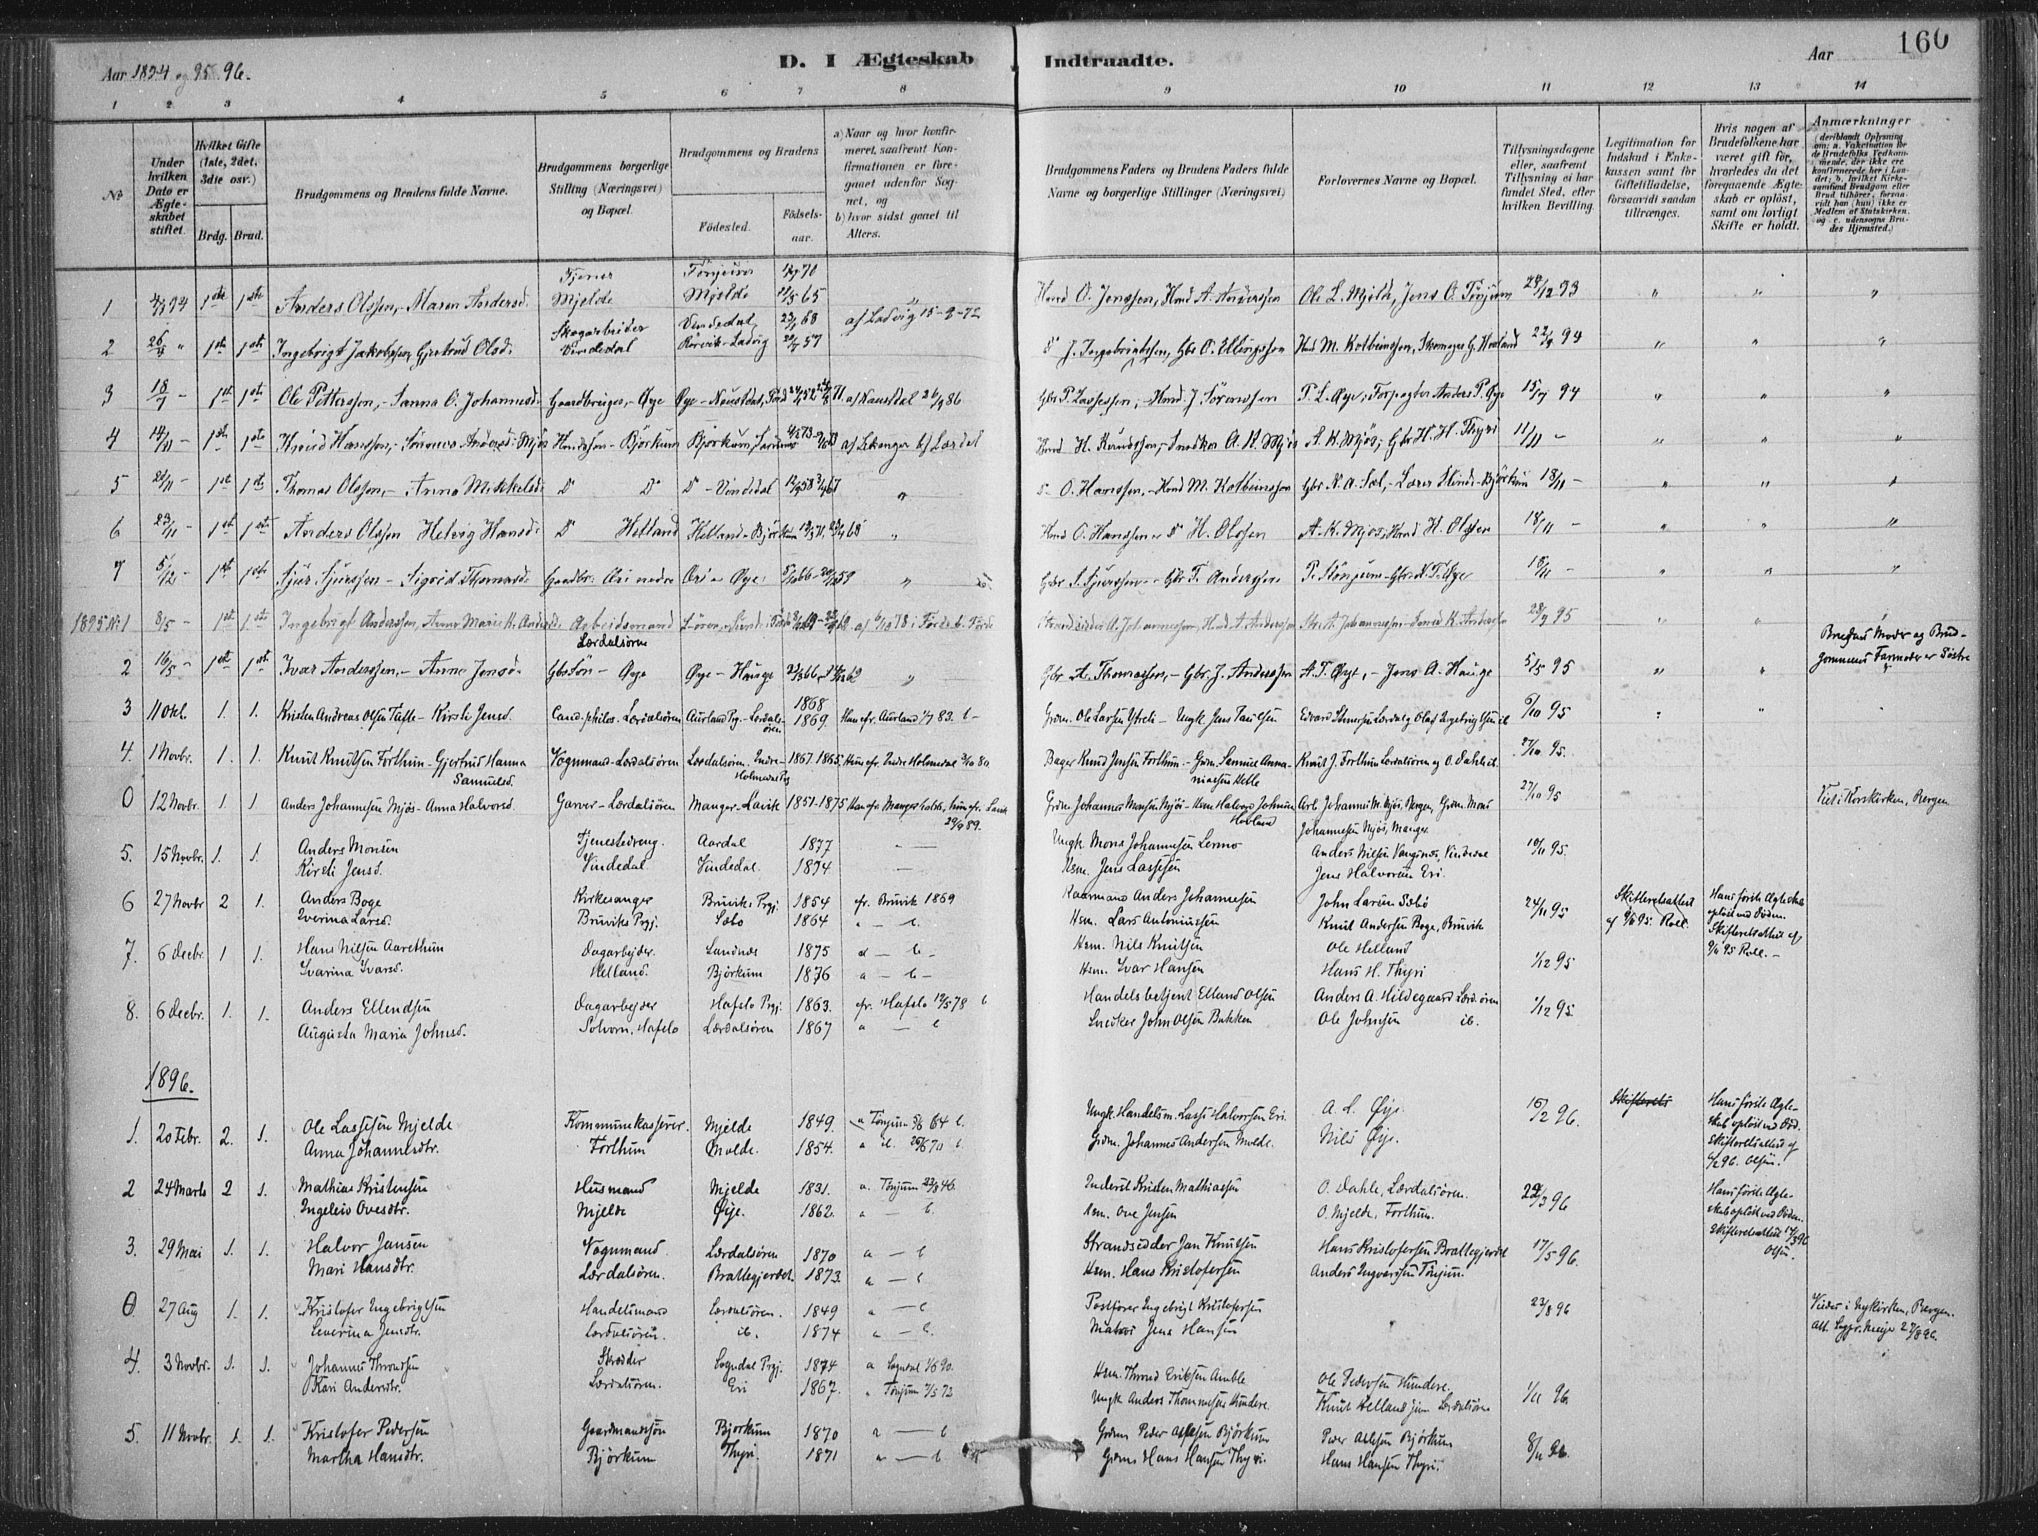 Aar 1894 og 95. 96.
D. I Ægteskab Indtraadte.
Aar
160
1 2 3 4 5 6 7 8 9 10 11 12 13 14
No
Under hvilken Dato er Ægteskabet stiftet.
Hvilket Gifte (1ste, 2det, 3die osv.)
Brdg. Brud.
Brudgommens og Brudens fulde Navne.
Brudgommens borgerlige Stilling (Næringsvei) og Bopæl.
Brudgommens og Brudens
Fødested.
Fødselsaar.
a) Naar og hvor konfirmeret, saafremt Konfirmationen er foregaaet udenfor Sognet, og
b) hvor sidst gaaet til Alters.
Brudgommens Faders og Brudens Faders fulde Navne og borgerlige Stillinger (Næringsvei)
Forlovernes Navne og Bopæl.
Tillysningsdagene eller, saafremt Tillysning ei har fundet Sted, efter hvilken Bevilling.
Legitimation for Indskud i Enkekassen samt for Giftetilladelse, forsaavidt saadan tiltrænges.
Hvis nogen af Brudefolkene har været gift før, hvorledes da det foregaaende Ægteskab er opløst, samt om lovligt Skifte er holdt.
Anmærkninger (deriblandt Oplysning om: a. Vakcination for de Brudefolks Vedkommende, der ikke ere konfirmerede her i Landet; b. hvilket Kirkesamfund Brudgom eller Brud tilhører, forsaavidt han (hun) ikke er Medlem af Statskirken, og c. udensogns Brudes Hjemsted.)
1 94 1ste 1ste Anders Olssen, - Maren Andersd. Tjener Mjelde Tønjum Mjelde 70 11/5 65 Hmd O. Jenssen, Hmd A. Anderssen Ole L. Mjelde, Jens O. Tønjum 28/12 93
2 26/4 " 1ste 1ste Ingebrigt Jakobssen, Gjertrud Olsd. Skogarbeider Vindedal Vindedal, Ladvig 68 57 af Ladvig 15-9-72 J. Ingebrigtssen, Gbr O. Ellingssen Hmd M. Kolbeinssen, 22/4 94
3 18/7 - 1ste 1ste Ole Pettersson, - Sanna O. Johannesd. Gaardbruger, - Øye Øye - Naustdal, Førd af Naustdal 86 Gbr P. Lassessen, - Hmd J. Sørenssen P. L. Øye, Anders P. Øye 15/7 94
4 14/11 - 1ste 1ste Knud Hanssen, - Andersd. Mjøs Hmdssøn - Bjørkum Bjørkum, af Lekanger b) Lærdal Hmd H. Knudssen, - Snedker A. K. Mjøs A. K. Mjøs, Gbr H. H. Thyri 11/11 -
5 1ste 1ste Thomas Olssen, - Anna Mikkelsd. Do Do Do - Vindedal O. Hanssen, - Hmd M. Kolbeinssen Gbr N. A. Sæl, - Lærer Bjørkum 18/11 -
6 23/11 - 1ste 1ste Anders Olssen Helvig Hansd. Do Helland Helland - Bjørkum Hmd O. Hanssen - H. Olssen A. K. Mjøs, Hmd H. Olssen 18/11 -
7 5/12 - 1ste 1ste Sjur Sjurssen - Sigrid Thomasd. Gaardbr. Eri nedre Eri - Øye 66 - 59 Gbr S. Sjurssen - Gbr T. Anderssen P. Tønjum - Gbr T. Øye 18/11 -
1895 No 1 8/5 - 1ste 1ste Ingebrigt Anderssen, Anne Marie K. Andersd. Arbeidsmand Lærdalsøren af 78 i Førde b. Førde Strandsidder A. Johannessen, Hmd A. Anderssen 28/4 95
2 16/5 - 1ste 1ste Ivar Anderssen, - Anna Jensd. Gbrsøn - Øye Øye - Hauge 62 Gbr A. Thomassen, - Gbr. J. Anderssen A. T. Øye, - Jens A. Hauge 5/5 95 Brudens Moder og Brudgommens Farmoder er Søstre
3 11 Okt. 1. 1. Kristen Andreas Olsen Tafte - Kirsti Jensd. Cand. philos. Lærdalsøren Aurland Prg. - Lærdalsøren 1868 1869 Han efr. Aurland 83. b - Grdm. Ole Larsen Ytreli - Ungk. Jens Paulsen Edvard Lærdal og Olaf Ingebrigtsen ib. 6/10 95
4. 1 Novbr. 1. 1. Knut Knutsen Forthun - Gjertrud Hanna Samuelsd. Vognmand - Lærdalsøren Lærdalsøren. Indre-Holmedal Prg 1867. 1865. Hun efr. Indre Holmedal 80 Bager Knud Jensen Forthun - Grdm. Samuel Annaniassen Helle Knut J. Forthun Lærdalsøren og O. Dahle ib. 27/10 95.
0 12 Novbr. 1. 1. Anders Johannesen Mjøs - Anna Halvorsd. Garver - Lærdalsøren Manger - Lavik 1851 - 1875 Han efr. Manger hun efr. Lavik 29/9 89. Grdm Johannes Monsen Mjøs - Hsm. Halvard Johnsen Hovland Arb. Johannes M. Mjøs, Bergen, Grdm. Mons Johannesen Mjøs, Manger. 27/10 95 Viet i Korskirken, Bergen
5. 15 Novbr. 1. 1. Anders Monsen Kirsti Jensd. Tjenestedreng. Vindedal Aardal Vindedal. 1877 1874 Ungk. Mons Johannesen Lermo Hsm. Jens Lassesen Anders Nilsen Vangsnes, Vindedal Jens Halvorsen Eri. 10/11 95.
6 27 Novbr 2 1. Anders Boge Iverina Larsd. Kirkesanger Bruviks Prgj. Bruviks Prgj. Sæbo 1854 1864 efr. Bruvik 1869 " - b. Kaarmand Anders Johannesen Hsm. Lars Antoniussen John Larsen Sæbö Knut Andersen Boge, Bruvik 24/11 95 Skifteretsattest af 95. Roll. Hans förste Ægteskab oplöst ved Döden. Skifteretsattest af 95 Roll. -
7. 6 Decbr. 1 1. Hans Nilsen Aarethun Ivarina Ivarsd. Dagarbejder Helland. Sandnes Bjørkum 1875 1876 a - b - a - b - Hsm. Nils Knutsen Hsm. Ivar Hansen Ole Helland Hans H. Thyri 1/12 95
8. 6 Decbr. 1. 1. Anders Ellendsen Augusta Maria Johnsd. Dagarbejder Solvorn, Hafslo Hafslo Prgj. Lærdalsøren 1863. 1867 efr. Hafslo 19/5 78 b a - b Handelsbetjent Ellend Olsen Snedker John Olsen Bakken Anders A. Hildegaard Lærd.øren Ole Johnsen ib. 1/12 95
1896.
1. 20 Febr. 2. 1. Ole Lassesen Mjelde Anna Johannesdtr. Kommunekasserer. Forthun Mjelde Molde. 1849. 1854. a Tönjum 64 b. a ib. 70 b Ungk. Handelsm. Lasse Halvorsen Eri. Grdm. Johannes Andersen Molde. A. L. Øje. Nils Øje. 16/2 96. Skifterets Hans förste Ægteskab oplöst ved Död. Skifteretsattest af 96. Olsen.
2 24 Marts 2 1. Mathias Kristensen Ingeleiv Ovesdtr. Husmand Mjelde Mjelde Øije. 1831. 1862. a. Tönjum 46. a - b. Inderst Kristen Mathiassen Hsm. Ove Jensen O. Dahle, Lærdalsøren. O. Mjelde. Forthun. 22/3 96 Hans förste Ægteskab oplöst ved Döden. Skifteretsattest 17/3 96 Olsen.
3. 29 Mai 1. 1. Halvor Jansen Mari Hansdtr. Vognmand. Lærdalsøren. Lærdalsören Brattegjerdet. 1870 1873. a - b a - b Strandsidder Jan Knutsen Hsm. Hans Kristofersen Hans Kristofersen Brattegjerdet Anders Ingvartsen Tönjum. 17/5 96.
0 27 Aug 1. 1. Kristofer Ingebrigtsen Severina Jensdtr. Handelsmand Lærdalsøren. Lærdalsøren. ib. 1849 1874 a - b a - b. Postförer Ingebrigt Kristofersen Jens Hansen 23/8 96 Viede i Nykirken, Bergen. att. Sogpr. 27/8 96.
4. 3 Novbr. 1. 1. Johannes Throndsen Kari Andersdtr. Skrædder Lærdalsøren. Sogndal Prgj. Eri 1874 1867. a Sogndal 90. " Tönjum 73 Hsm. Thrond Eriksen Amble Ungk Anders Thommesen Hundere. Ole Pedersen Hundere. Knut Helland jun Lærdalsöre 1/11 96.
5. 11 Novbr. 1. 1. Kristofer Pedersen Martha Hansdtr. Gaardmandssön Bjørkum Bjorkum Thyri. 1870 1871 a - b a - b Grdm Peder Björkum Grdm Hans Hansen Thyri. Peder Björkum Hans Hansen Thyri. 8/11 96.